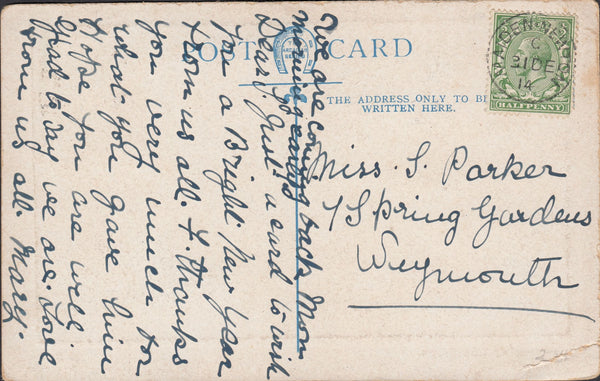 POST CARD
THE ADDRESS ONLY TO BE
WRITTEN HERE.
C
31 DE
14
HALFPENNY
Miss. S. Parker
7 Spring Gardens
Weymouth
We are coming back Mon
morning early
Dear S. Just a card to wish
you a Bright New Year
from us all. & thanks
you very much for
what you gave him
Hope you are well.
Glad to day we are. Love
from us all. Mary.